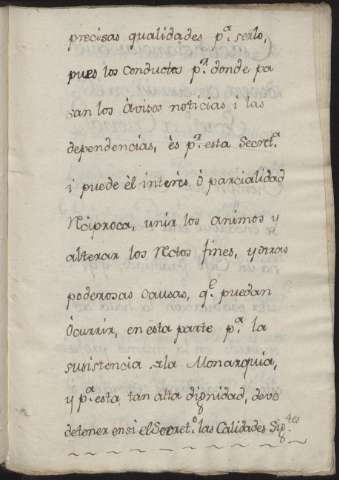 precisas qualidades pª. serlo,
pues los conductos pr. donde pa
san los àvisos noticias i las
dependencias, ès pr. esta Secretª.
i puede èl interès ò parcialidad
Reciproca, unir los animos y
alterar los Rectos fines, y otras
poderosas causas, qe. puedan
òcurrir, en esta parte pª. la
susistencia de la Monarquia,
y pª. esta tan alta dignidad, deve
detener en si el Secreto. las Calidades Sigtes.